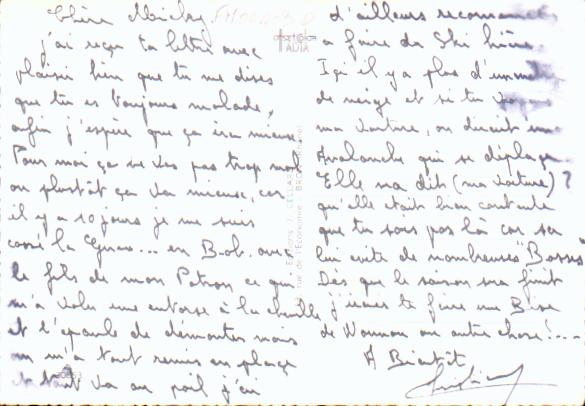 Chère Micky
j'ai reçu ta lettre avec
plaisir bien que tu me dises
que tu es toujours malade,
enfin j'espère que ça ira mieux
Pour moi ça se va pas trop mal
ou plustôt ça va mieux, car
il y a 10 jours je me suis
cassé la Gueu... en B-ob. avec
le fils de mon Patron ce qui
m'a valu une entorse à la cheville
et l'épaule de démontée mais
on m'a tout remis en place
tout va au poil j'ai
d'ailleurs recommencé
a faire du Ski hière.
Içi il y a plus d'un mètre
de neige et si tu voyais
ma voiture, on dirait une
Avalanche qui se déplaçe
Elle m'a dit (ma voiture)?
qu'elle était bien contente
que tu sois pas là car ça
lui évite de nombreuses "Bosses"
Dès que la saison sera finit
j'irais te faire une Bise
de Maman ou autre chose!...
A Bientôt
ADIA
Editions J. CELLARD
rue de l'Economie - BRON (Rhône)